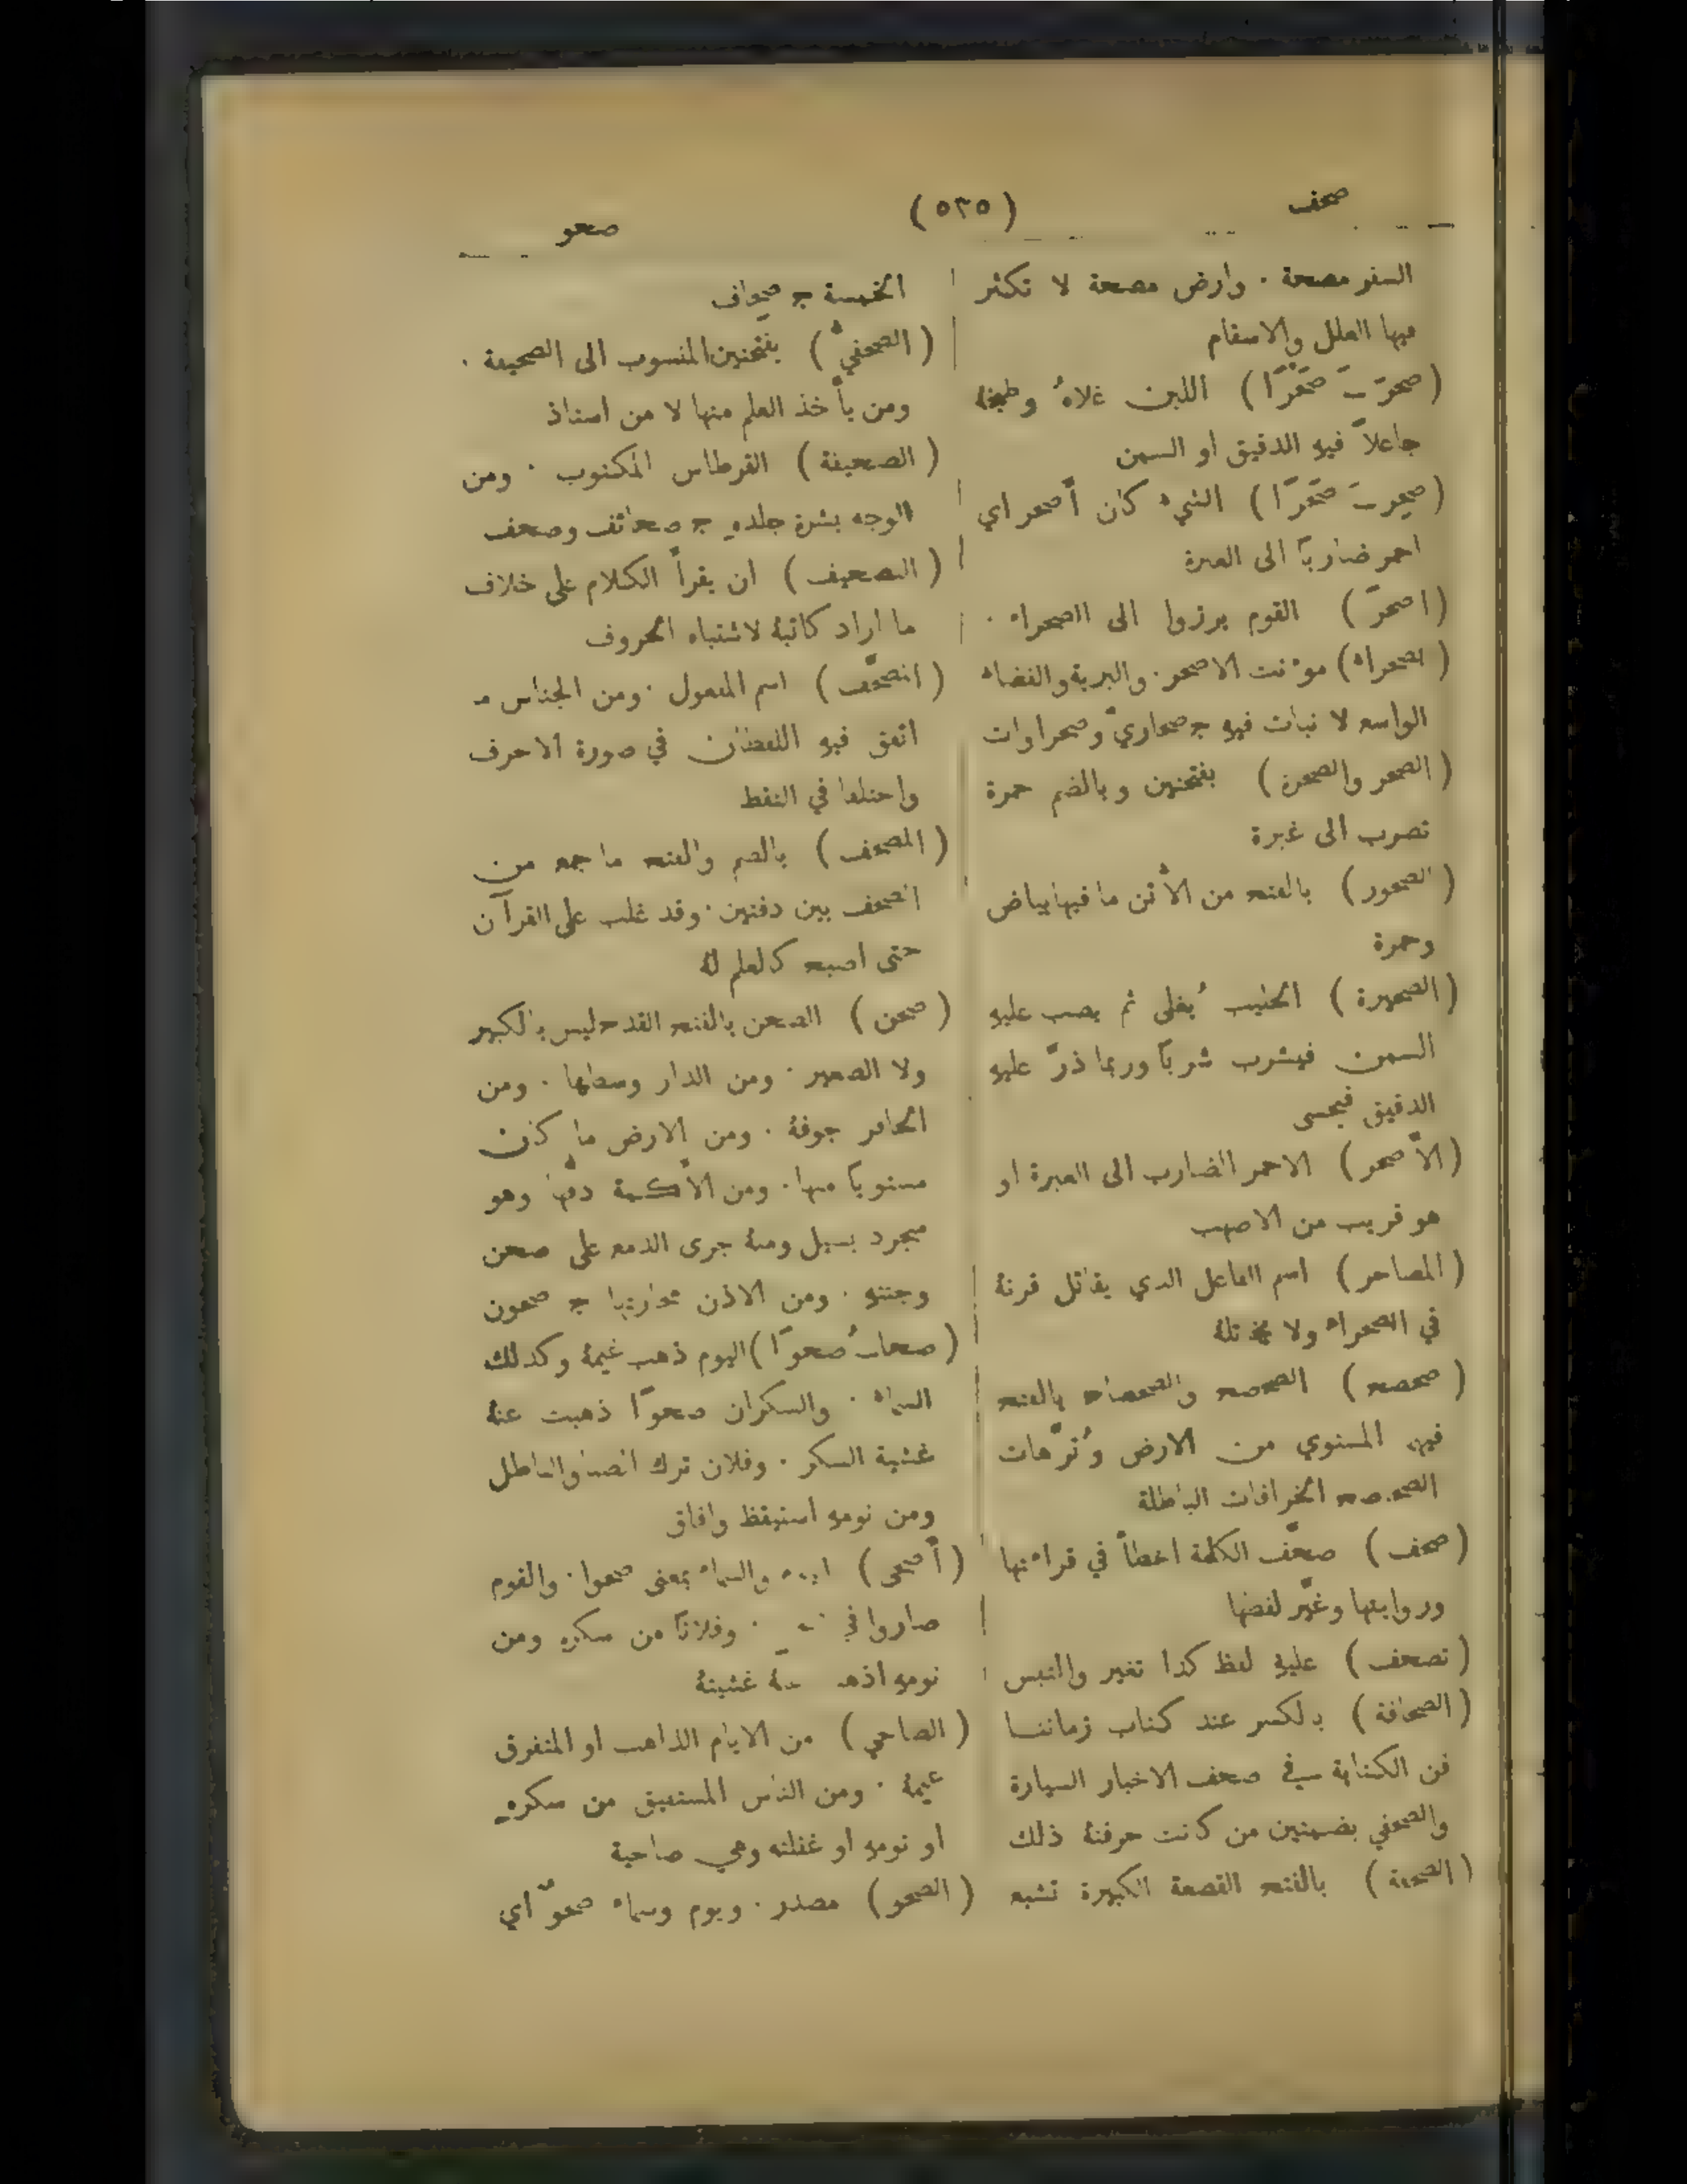 صحف (٥٣٥) صحو
السفر مصحة . وارض مصحة لا تكثر
فيها العلل والاسقام
(صحرَ ـَ صَحْرًا) اللبن غلاهُ وطبخهُ
جاعلاً فيهِ الدقيق او السمن
(صحِر ـَ صَحَرًا) الشيء كان أَصحر اي
احمر ضاربًا الى الغبرة
(اصحرَ) القوم برزوا الى الصحراء .
(الصحراء) مؤنث الاصحر . والبرية والفضاء
الواسع لا نبات فيهِ ج صحاريّ وصحراوات
(الصحر والصحرة) بفتحتين وبالضم حمرة
تضرب الى غبرة
(الصحور) بالفتح من الأتن ما فيها بياض
وحمرة
(الصحيرة) الحليب يُغلى ثم يصب عليهِ
السمن فيشرب شربًا وربما ذرّ عليهِ
الدقيق فيحسى
(الأَصحر) الاحمر الضارب الى الغبرة او
هو قريب من الاصهب
(المصاحر) اسم الفاعل الذي يقاتل قرنهُ
في الصحراء ولا يخاتلهُ
(صحصح) الصحصح والصحصاح بالفتح
فيهما المستوي من الارض وتُرَّهات
الصحصح الخرافات الباطلة
(صحف) صحَّف الكلمة اخطأَ في قراءتها
وروايتها وغيَّر لفظها
(تصحف) عليهِ لفظ كذا تغير والتبس
(الصحافة) بالكسر عند كتاب زماننا
فن الكتابة في صحف الاخبار السيارة
والصحفي بضمتين من كانت حرفتهُ ذلك
(الصحفة) بالفتح القصعة الكبيرة تشبع
الخمسة ج صِحاف
(الصحفيُّ) بفتحتين المنسوب الى الصحيفة .
ومن يأْخذ العلم منها لا من استاذ
(الصحيفة) القرطاس المكتوب . ومن
الوجه بشرة جلدهِ ج صحائف وصحف
(التصحيف) ان يقرأَ الكلام على خلاف
ما اراد كاتبهُ لاشتباه الحروف
(المصحَّف) اسم المفعول . ومن الجناس ما
اتفق فيهِ اللفظان في صورة الاحرف
واختلفا في النقط
(المصحف) بالضم والفتح ما جمع من
الصحف بين دفتين . وقد غلب على القرآن
حتى اصبح كالعلم لهُ
(صحن) الصحن بالفتح القدح ليس بالكبير
ولا الصغير . ومن الدار وسطها . ومن
الحافر جوفهُ . ومن الارض ما كان
مستويًا منها . ومن الأكمة وهو
يسيل ومنهُ جرى الدمع على صحن
وجنتهِ . ومن الاذن محارتها ج صحون
(صحا ـُ صحوًا) اليوم ذهب غيمهُ وكذلك
السماء . والسكران صحوًا ذهبت عنهُ
غشية السكر . وفلان ترك الصبا والباطل
ومن نومهِ استيقظ وافاق
(أَصحى) والسماء بمعنى صحوا . والقوم
صاروا في . وفلانًا من سكرهِ ومن
نومهِ اذهب غشيتهُ
(الصاحي) من الايام الذاهب او المتفرق
غيمهُ . ومن الناس المستفيق من سكرهِ
او نومهِ او غفلته وهي صاحية
(الصحو) مصدر . ويوم وسماء صحوٌ اي